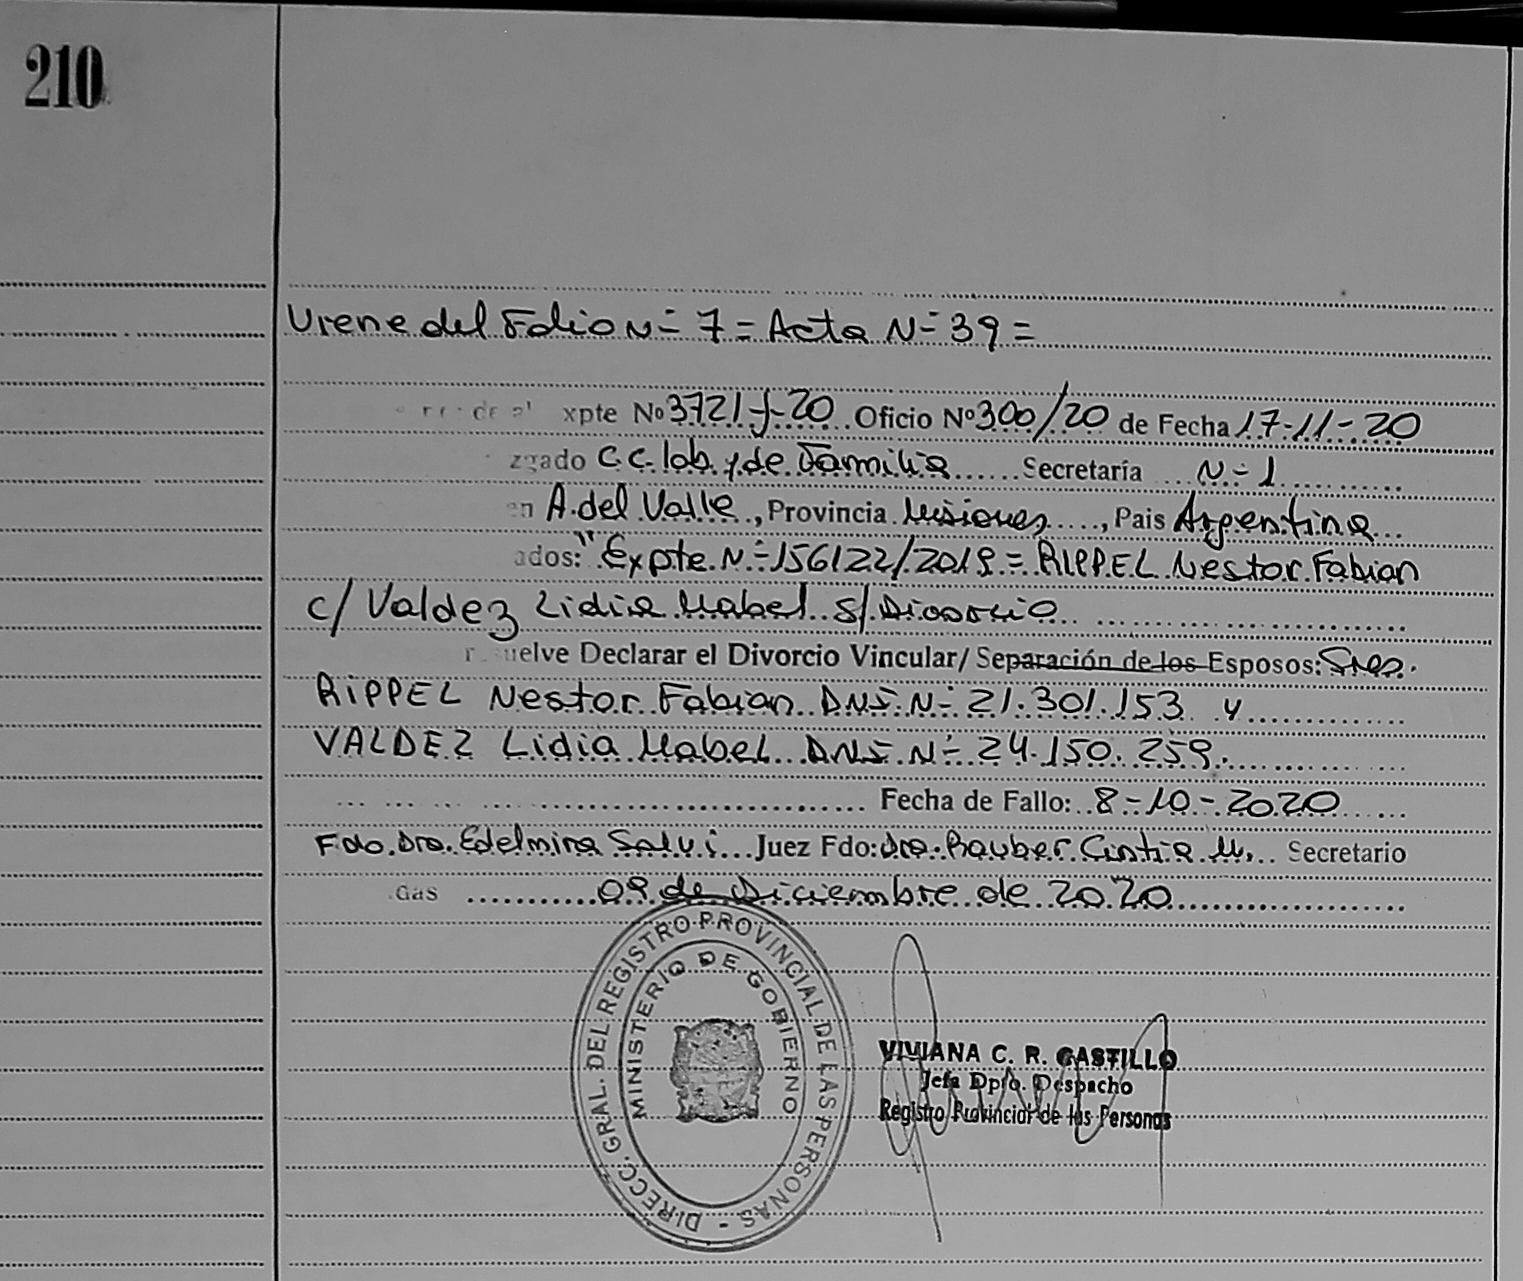 210
Viene del Folio N= 7 = Acta N= 39 =
xpte Nº 3721-J-20 Oficio Nº 300/20 de Fecha 17-11-20
zgado C.C. lab. y de Familia Secretaría N= 1
en A. del Valle, Provincia Misiones, Pais Argentina
ados: "Expte. N= 156122/2019 = RIPPEL Nestor Fabian
c/ Valdez Lidia Mabel s/ Divorcio
uelve Declarar el Divorcio Vincular/ Separación de los Esposos: Sres.
RIPPEL Nestor Fabian DNI N= 21.301.153 y
VALDEZ Lidia Mabel DNI N= 24.150.259.
Fecha de Fallo: 8-10-2020
Fdo. Dra. Edelmira Salvi Juez Fdo: Dra. Rauber Cintia M. Secretario
Gas 09 de Diciembre de 2020
DIRECC. GRAL. DEL REGISTRO PROVINCIAL DE LAS PERSONAS -
MINISTERIO DE GOBIERNO
VIVIANA C. R. CASTILLO
Jefa Dpto. Despacho
Registro Provincial de las Personas